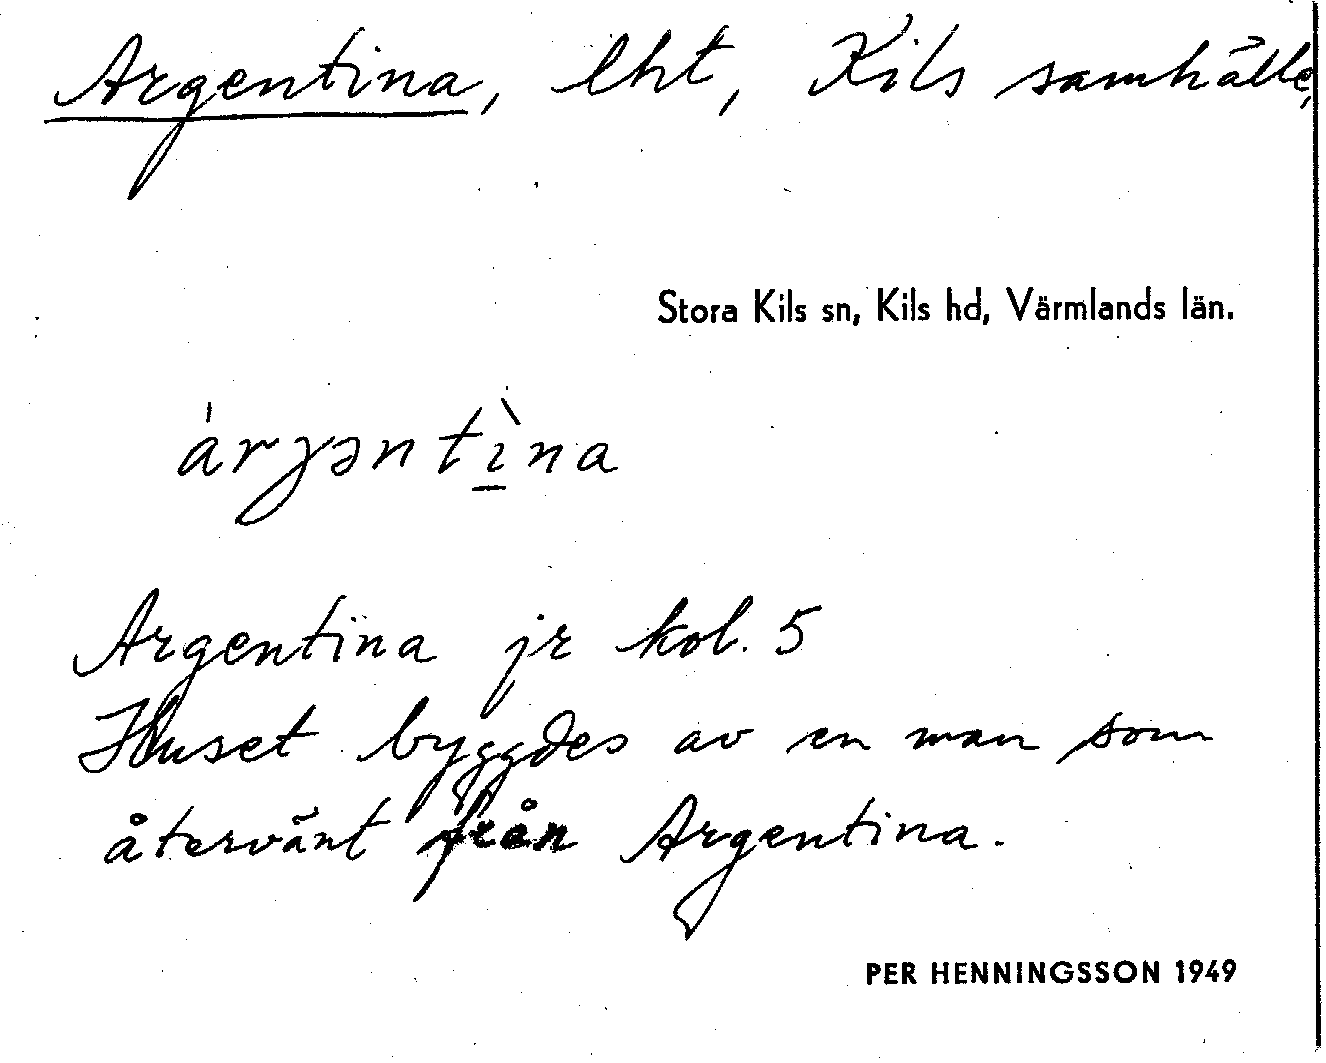 Argentina, lht, Kils samhälle,
Stora Kils sn, Kils hd, Värmlands län.
árɣəntı̱̀na
Argentina jr kol. 5
Huset byggdes av en man som
återvänt från Argentina.
PER HENNINGSSON 1949